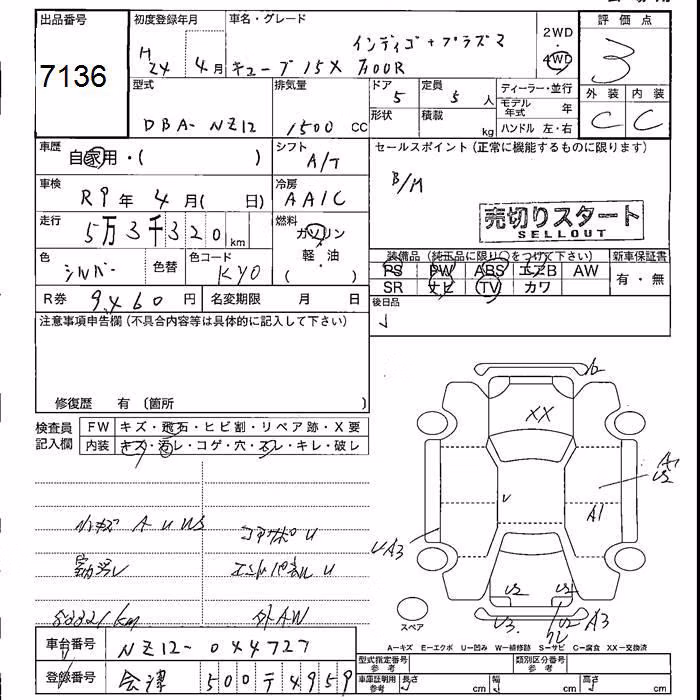 出品番号
7136
初度登録年月
H24 4月
車名・グレード
インディゴ+プラズマ
キューブ 15X
2WD
・
4WD
評価点
3
外装 内装
C C
型式
DBA-NZ12
排気量
1500 cc
ドア
5
定員
5 人
形状
積載 kg
ディーラー・並行
モデル年式 年
ハンドル 左・右
車歴
自家用・( )
シフト
A/T
セールスポイント(正常に機能するものに限ります)
B/M
売切りスタート
SELLOUT
車検
R9年 4月( 日)
冷房
AAC
走行
5万3千320km
燃料
ガソリン
・
軽・油
( )
色
シルバー
色替
色コード
KY0
R券 9,460 円
名変期限 月 日
装備品(純正品に限り○をつけて下さい)
PS PW ABS エアB AW
SR ナビ TV カワ
新車保証書
有・無
後日品
注意事項申告欄(不具合内容等は具体的に記入して下さい)
修復歴 有 〔箇所 〕
検査員記入欄
FW キズ・飛石・ヒビ割・リペア跡・X要
内装 キズ・汚レ・コゲ・穴・スレ・キレ・破レ
小キズ A U WS
コアサポ U
室内汚レ
エンドパネル U
53321km
外AW
XX
A1
U2
U2
U3
A3
スペア
A-キズ E-エクボ U-凹み W-補修跡 S-サビ C-腐食 XX-交換済
車台番号
NZ12-044727
登録番号
会津 500 テ 4959
型式指定番号 参考
類別区分番号 参考
車庫証明用 参考
長さ cm
幅 cm
高さ cm